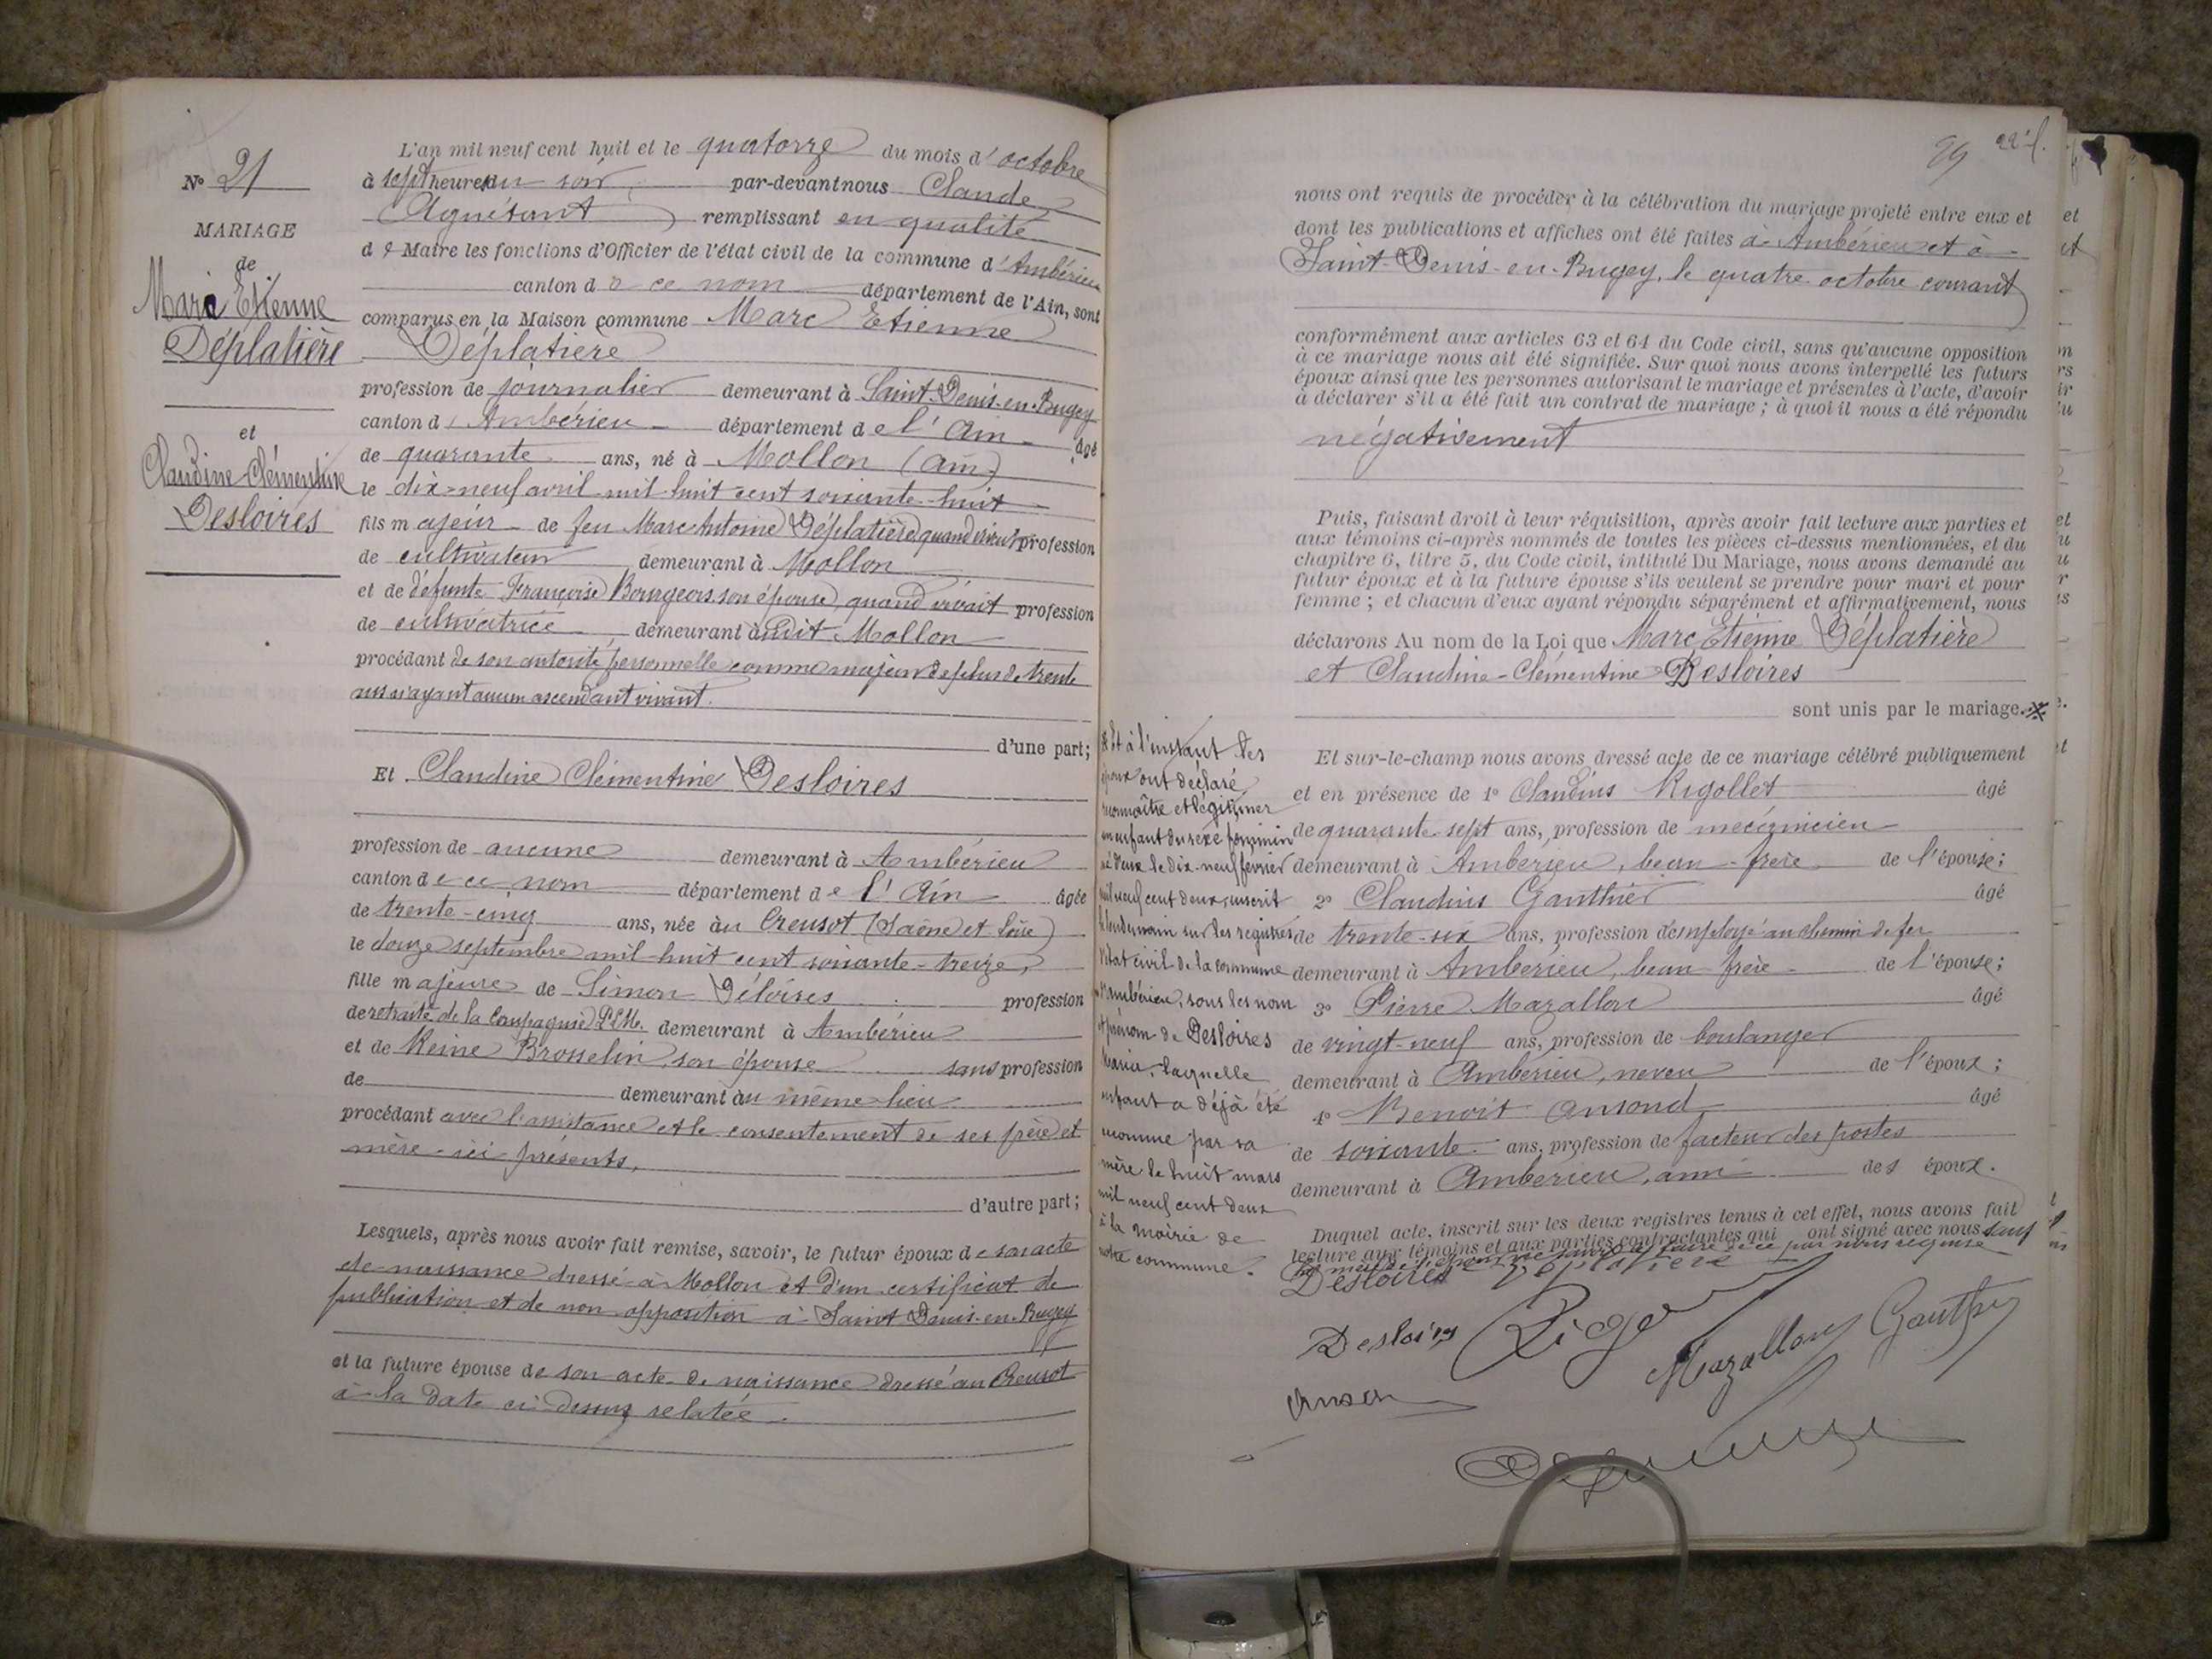 N° 21
MARIAGE
de
Marc Etienne
Déplatière
et
Claudine Clémentine
Desloires
L'an mil neuf cent huit et le quatorze du mois d'octobre
à sept heures du soir par-devant nous Claude
Aguétant remplissant en qualité
de Maire les fonctions d'Officier de l'état civil de la commune d'Ambérieu
canton de ce nom département de l'Ain, sont
comparus en la Maison commune Marc Etienne
Déplatière
profession de journalier demeurant à Saint-Denis-en-Bugey
canton d'Ambérieu département de l'Ain âgé
de quarante ans, né à Mollon (Ain)
le dix-neuf avril mil huit cent soixante-huit
fils majeur de feu Marc Antoine Déplatière, quand vivait profession
de cultivateur demeurant à Mollon
et de défunte Françoise Bourgeois son épouse, quand vivait profession
de cultivatrice demeurant audit Mollon
procédant de son autorité personnelle comme majeur de plus de trente
ans n'ayant aucun ascendant vivant.
d'une part;
Et Claudine Clémentine Desloires
profession de aucune demeurant à Ambérieu
canton de ce nom département de l'Ain âgée
de trente-cinq ans, née au Creusot (Saône et Loire)
le douze septembre mil huit cent soixante-treize,
fille majeure de Simon Déloires profession
de retraité de la Compagnie P.L.M. demeurant à Ambérieu
et de Reine Brosselin, son épouse sans profession
de demeurant au même lieu
procédant avec l'assistance et le consentement de ses père et
mère ici présents,
d'autre part;
Lesquels, après nous avoir fait remise, savoir, le futur époux de son acte
de naissance dressé à Mollon et d'un certificat de
publication et de non opposition à Saint Denis-en-Bugey
et la future épouse de son acte de naissance dressé au Creusot
à la date ci-dessus relatée.
29 22 f.
nous ont requis de procéder à la célébration du mariage projeté entre eux et
dont les publications et affiches ont été faites à Ambérieu et à
Saint-Denis-en-Bugey, le quatre octobre courant
conformément aux articles 63 et 64 du Code civil, sans qu'aucune opposition
à ce mariage nous ait été signifiée. Sur quoi nous avons interpellé les futurs
époux ainsi que les personnes autorisant le mariage et présentes à l'acte, d'avoir
à déclarer s'il a été fait un contrat de mariage; à quoi il nous a été répondu
négativement
Puis, faisant droit à leur réquisition, après avoir fait lecture aux parties et
aux témoins ci-après nommés de toutes les pièces ci-dessus mentionnées, et du
chapitre 6, titre 5, du Code civil, intitulé Du Mariage, nous avons demandé au
futur époux et à la future épouse s'ils veulent se prendre pour mari et pour
femme; et chacun d'eux ayant répondu séparément et affirmativement, nous
déclarons Au nom de la Loi que Marc Etienne Déplatière
et Claudine-Clémentine Desloires
sont unis par le mariage.
Et à l'instant les
époux ont déclaré
reconnaître et légitimer
un enfant du sexe féminin
né d'eux le dix-neuf février
mil neuf cent deux, inscrit
le lendemain sur les registres de
l'état civil de la commune
d'Ambérieu, sous les nom
et prénom de Desloires
Maria, laquelle
enfant a déjà été
reconnue par sa
mère le huit mars
mil neuf cent deux
à la mairie de
notre commune.
Et sur-le-champ nous avons dressé acte de ce mariage célébré publiquement
et en présence de 1° Claudius Rigollet âgé
de quarante-sept ans, profession de mécanicien
demeurant à Ambérieu, beau-frère de l'épouse;
2° Claudius Gauthier âgé
de trente-six ans, profession d'employé au chemin de fer
demeurant à Ambérieu, beau-frère de l'épouse;
3° Pierre Mazallon âgé
de vingt-neuf ans, profession de boulanger
demeurant à Ambérieu, neveu de l'époux;
4° Benoit Ansond âgé
de soixante ans, profession de facteur des postes
demeurant à Ambérieu, ami des époux.
Duquel acte, inscrit sur les deux registres tenus à cet effet, nous avons fait
lecture aux témoins et aux parties contractantes qui ont signé avec nous sauf
la mère de l'épouse ne savoir le faire de ce par nous requise
Desloires Déplatière
Desloires Rigo Mazallon Gauthier
Anson